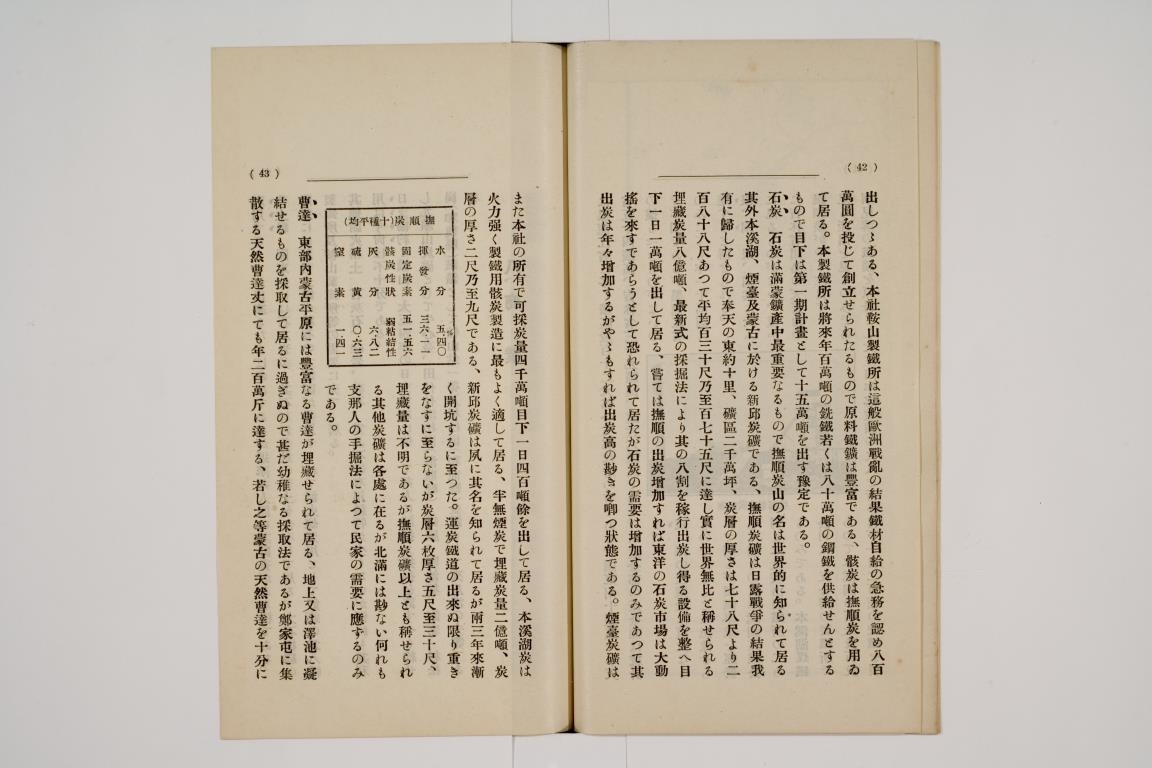 ( 42 )
出しつゝある、本社鞍山製鐵所は這般歐洲戰亂の結果鐵材自給の急務を認め八百
萬圓を投じて創立せられたるもので原料鐵鑛は豐富である、骸炭は撫順炭を用ゐ
て居る。本製鐵所は將來年百萬噸の銑鐵若くは八十萬噸の鋼鐵を供給せんとする
もので目下は第一期計畫として十五萬噸を出す豫定である。
石炭　石炭は滿蒙鑛產中最重要なるもので撫順炭山の名は世界的に知られて居る
其外本溪湖、煙臺及蒙古に於ける新邱炭礦である、撫順炭礦は日露戰爭の結果我
有に歸したもので奉天の東約十里、礦區二千萬坪、炭層の厚さは七十八尺より二
百八十八尺あつて平均百三十尺乃至百七十五尺に達し實に世界無比と稱せられる
埋藏炭量八億噸、最新式の採掘法により其の八割を稼行出炭し得る設備を整へ目
下一日一萬噸を出して居る、嘗ては撫順の出炭增加すれば東洋の石炭市場は大動
搖を來すであらうとして恐れられて居たが石炭の需要は增加するのみであつて其
出炭は年々增加するがやゝもすれば出炭高の尠きを喞つ狀態である。煙臺炭礦は
( 43 )
また本社の所有で可採炭量四千萬噸目下一日四百噸餘を出して居る、本溪湖炭は
火力强く製鐵用骸炭製造に最もよく適して居る、半無煙炭で埋藏炭量二億噸、炭
層の厚さ二尺乃至九尺である、新邱炭礦は夙に其名を知られて居るが兩三年來漸
撫順炭(十種平均)
水分　五・四〇%
揮發分　三六・一一
固定炭素　五一・五六
骸炭性狀　弱粘結性
灰分　六・八二
硫黃　〇・六三
窒素　一・四一
く開坑するに至つた。運炭鐵道の出來ぬ限り重き
をなすに至らないが炭層六枚厚さ五尺至三十尺、
埋藏量は不明であるが撫順炭礦以上とも稱せられ
る其他炭礦は各處に在るが北滿には尠ない何れも
支那人の手掘法によつて民家の需要に應するのみ
である。
曹達　東部內蒙古平原には豐富なる曹達が埋藏せられて居る、地上又は澤池に凝
結せるものを採取して居るに過ぎぬので甚だ幼稚なる採取法であるが鄭家屯に集
散する天然曹達丈にても年二百萬斤に達する、若し之等蒙古の天然曹達を十分に